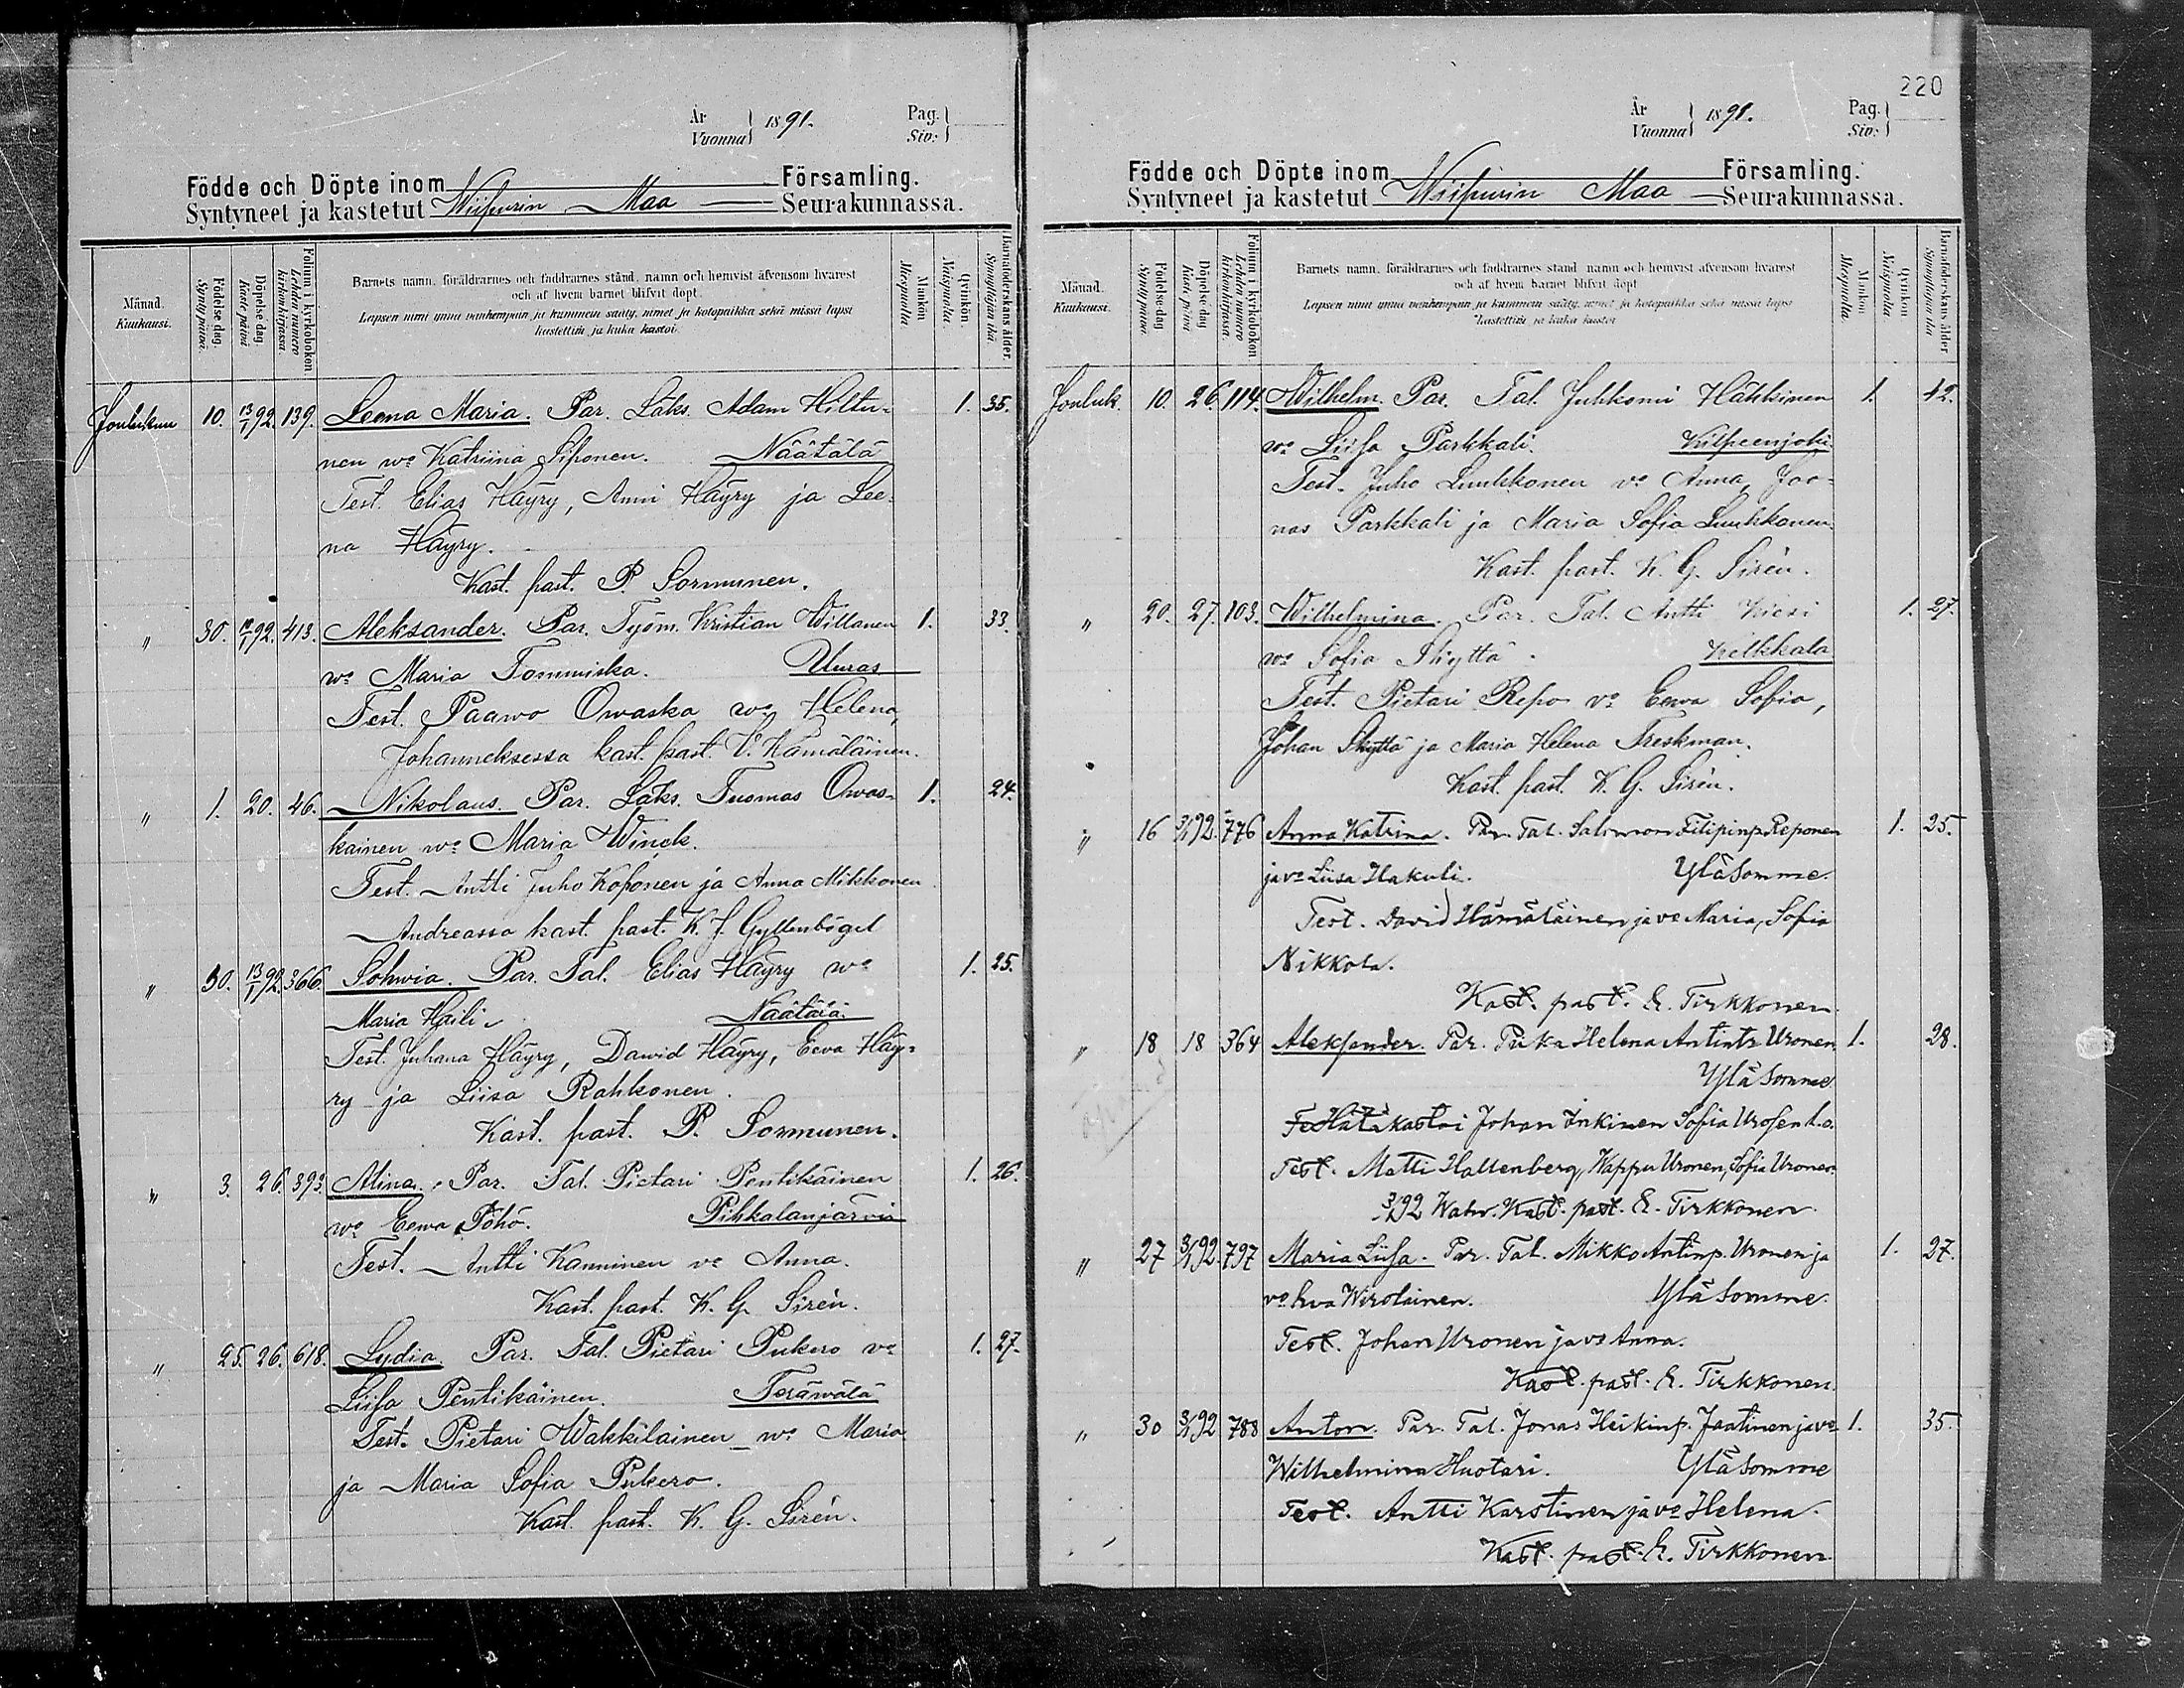 År
Vuonna
1891.
Pag.
Siv:
Födde och Döpte inom Församling.
Syntyneet ja kastetut Wiipurin Maa Seurakunnassa.
Månad.
Kuukausi.
Födelse dag.
Synty päivä.
Döpelse dag.
Kaste päivä
Folium i kyrkobokon
Lehden numero
kirkonkirjassa.
Barnets namn, föräldrarnes och faddrarnes stånd, namn och hemvist äfvensom hvarest
och af hvem barnet blifvit döpt.
Lapsen nimi ynnä vanhempain ja kummein sääty, nimet ja kotopaikka sekä missä lapsi
kastettiin ja kuka kastoi.
Mankön
Miespuolta
Qvinkön
Naispuolta.
Barnaföderskans ålder.
Synnyttäjän ikä.
Joulukuu 10. 13/1 92. 139. Leena Maria. Par. Läks. Adam Hiltu- 1. 35.
nen wo Katriina Siponen. Näätälä
Test. Elias Häyry, Anni Häyry ja Lee-
na Häyry.
Kast. past. P. Sormunen.
" 30. 10/1 92. 413. Aleksander. Par. Työm. Kristian Willanen 1. 33.
wo Maria Tommiska. Uuras
Test. Paawo Owaska wo Helena,
Johanneksessa kast. past. V. Hämäläinen.
" 1. 20. 46. Nikolaus. Par. Läks. Tuomas Owas- 1. 24.
kainen wo Maria Winck.
Test. Antti Juho Koponen ja Anna Mikkonen
Andreassa kast. past. K. F. Gyllenbögel
" 30. 13/1 92. 366. Sohwia. Par. Tal. Elias Häyry wo 1. 25.
Maria Haili. Näätälä.
Test. Juhana Häyry, Dawid Häyry, Eeva Häy-
ry ja Liisa Rahkonen.
Kast. past. P. Sormunen.
" 3. 26. 393. Miina. Par. Tal. Pietari Pentikäinen 1. 26.
wo Eewa Pöhö. Pihkalanjärvi
Test. Antti Kanninen vo Anna.
Kast. past. K. G. Sirèn.
" 25. 26. 618. Lydia. Par. Tal. Pietari Pukero vo 1. 27.
Liisa Pentikäinen. Teräwälä
Test. Pietari Wakkilainen wo Maria
ja Maria Sofia Pukero.
Kast. past. K. G. Sirèn.
220
År
Vuonna
1891.
Pag.
Siv:
Födde och Döpte inom Församling.
Syntyneet ja kastetut Wiipurin Maa Seurakunnassa.
Månad.
Kuukausi.
Födelse dag
Synty päivä.
Döpelse dag
Kaste päivä
Folium i kyrkobokon
Lehden numero
kirkonkirjassa.
Barnets namn, föräldrarnes och faddrarnes stånd namn och hemvist äfvensom hvarest
och af hvem barnet blifvit döpt
Lapsen nimi ynnä vanhempain ja kummein sääty, nimet ja kotopaikka sekä missä lapsi
kastettiin ja kuka kastoi
Mankön
Miespuolta.
Qvinkön
Naispuolta.
Barnaföderskans ålder
Synnyttäjän ikä
Jouluk. 10. 26. 114. Wilhelm. Par. Tal. Juhkomi Häkkinen 1. 42.
wo Liisa Parkkali. Kilpeenjoki
Test. Juho Luukkonen vo Anna, Joo-
nas Parkkali ja Maria Sofia Luukkanen.
Kast. past. K. G. Sirèn.
" 20. 27. 103. Wilhelmina. Par. Tal. Antti Kiesi 1. 27.
wo Sofia Skyttä. Kelkkala
Test. Pietari Repo vo Eewa Sofia,
Johan Skyttä ja Maria Helena Treskman.
Kast. past. K. G. Sirèn.
" 16 3/1 92. 776 Anna Katrina. Par. Tal. Salomon Filipinp. Reponen 1. 25.
ja vo Liisa Hakuli. Yläsomme.
Test. David Hämäläinen ja vo Maria, Sofia
Nikkola.
Kast. past. E. Tirkkonen
" 18 18 364 Aleksander. Par. Piika Helena Antintr Uronen 1. 28.
Yläsomme
Hätäkastoi Johan Inkinen
Test. Matti Hallenberg, Kappu Uronen, Sofia Uronen
3/1 92 Wahv. Kast. past. E. Tirkkonen.
" 27 3/1 92. 797 Maria Liisa. Par. Tal. Mikko Antinp. Uronen ja 1. 27.
vo Eva Wirolainen. Yläsomme.
Test. Johan Uronen ja vo Anna.
Kast. past. E. Tirkkonen.
" 30 3/1 92 788 Anton. Par. Tal. Jonas Heikinp. Jaatinen ja vo 1. 35.
Wilhelmina Huotari. Yläsomme
Test. Antti Karstinen ja vo Helena.
Kast. past. E. Tirkkonen.